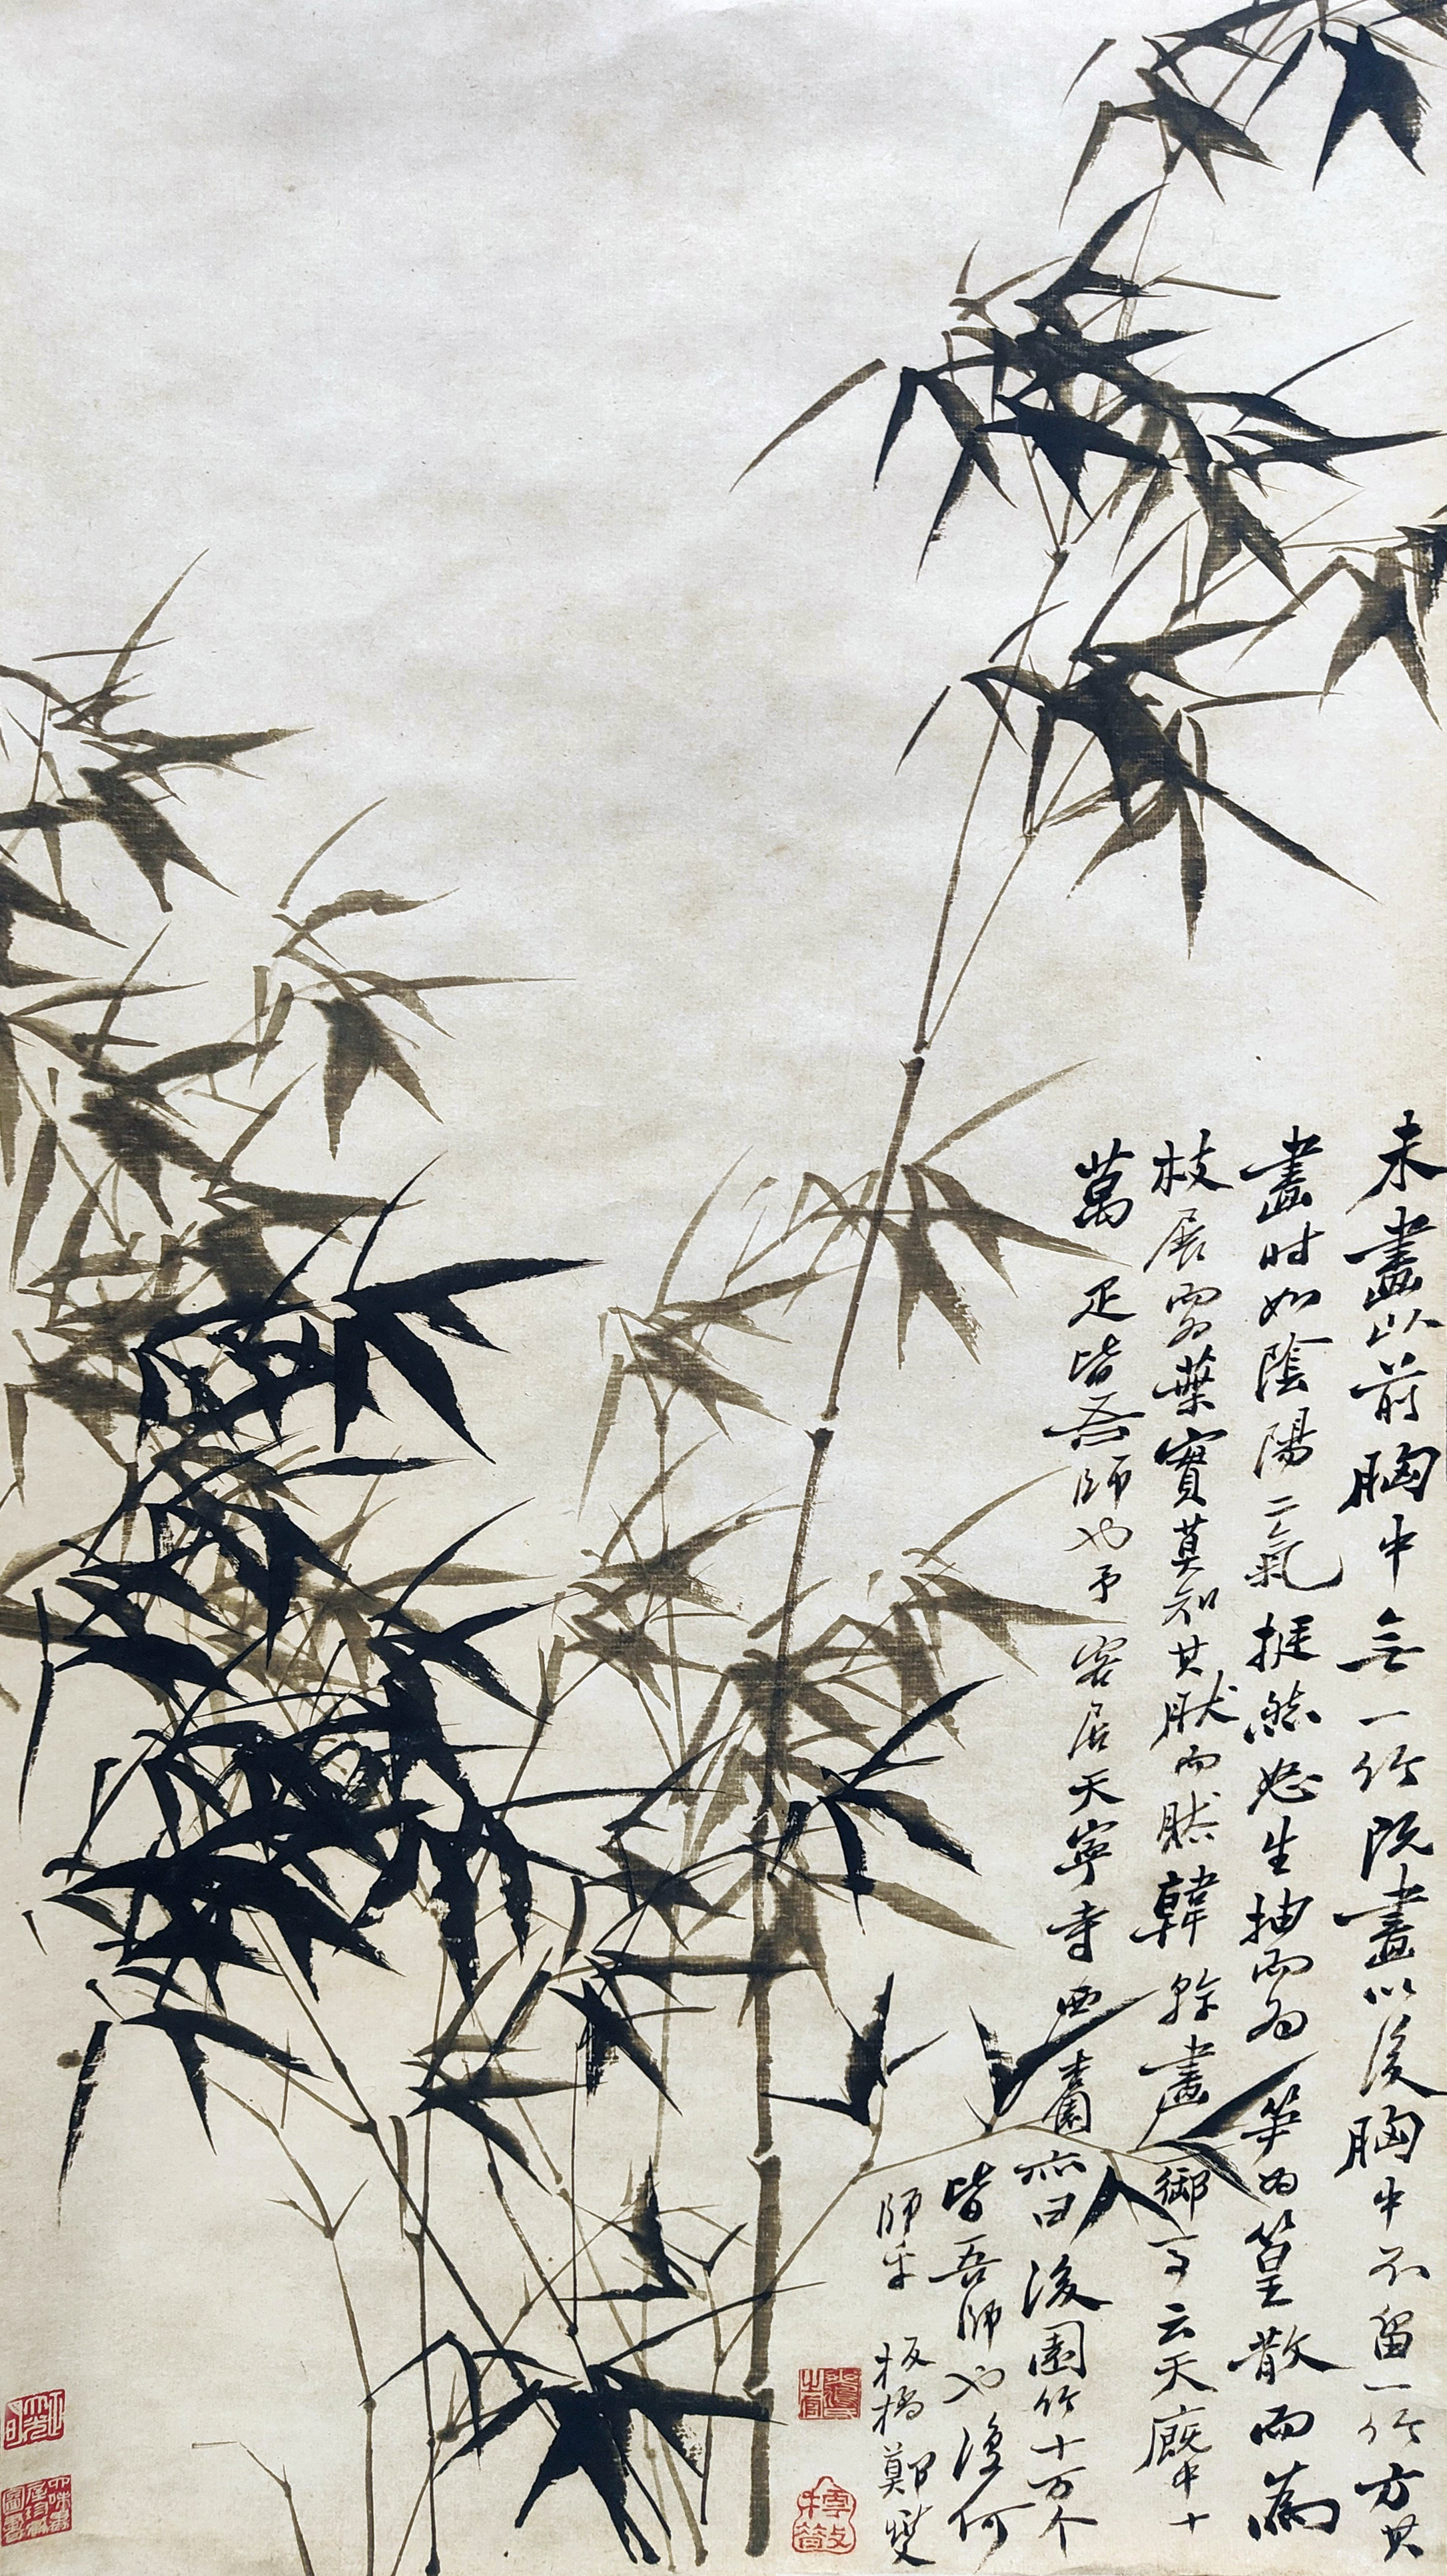 未畫以前胸中無一竹既畫以後胸中不留一竹方其
畫時如陰陽二氣挺然怒生抽而為笋為篁散而為
枝展而為葉實莫知其然而然韓幹畫御馬云天廐中十
萬疋皆吾師也予客居天寧寺西園亦曰後園竹十万个
皆吾師也復何
師乎 板橋鄭燮